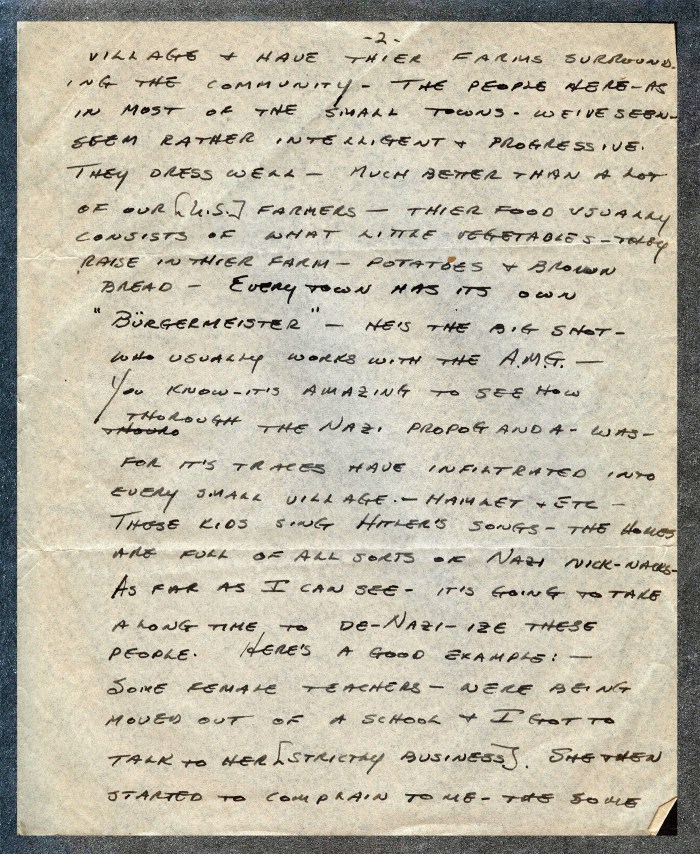 -2-
VILLAGE & HAVE THIER FARMS SURROUND-
ING THE COMMUNITY - THE PEOPLE HERE - AS
IN MOST OF THE SMALL TOWNS - WE'VE SEEN -
SEEM RATHER INTELLIGENT & PROGRESSIVE.
THEY DRESS WELL - MUCH BETTER THAN A LOT
OF OUR [U.S.] FARMERS - THIER FOOD USUALLY
CONSISTS OF WHAT LITTLE VEGETABLES - THEY
RAISE IN THIER FARM - POTATOES & BROWN
BREAD - EVERY TOWN HAS ITS OWN
"BÜRGERMEISTER" - HE'S THE BIG SHOT -
WHO USUALLY WORKS WITH THE A.M.G. -
YOU KNOW - IT'S AMAZING TO SEE HOW
THOROUGH
THOURO THE NAZI PROPOGANDA - WAS -
FOR IT'S TRACES HAVE INFILTRATED INTO
EVERY SMALL VILLAGE. - HAMLET & ETC -
THESE KIDS SING HITLER'S SONGS - THE HOMES
ARE FULL OF ALL SORTS OF NAZI NICK-NACKS -
AS FAR AS I CAN SEE - IT'S GOING TO TAKE
A LONG TIME TO DE-NAZI-IZE THESE
PEOPLE. HERE'S A GOOD EXAMPLE: -
SOME FEMALE TEACHERS - WERE BEING
MOVED OUT OF A SCHOOL & I GOT TO
TALK TO HER [STRICTLY BUSINESS]. SHE THEN
STARTED TO COMPLAIN TO ME - THE SOME